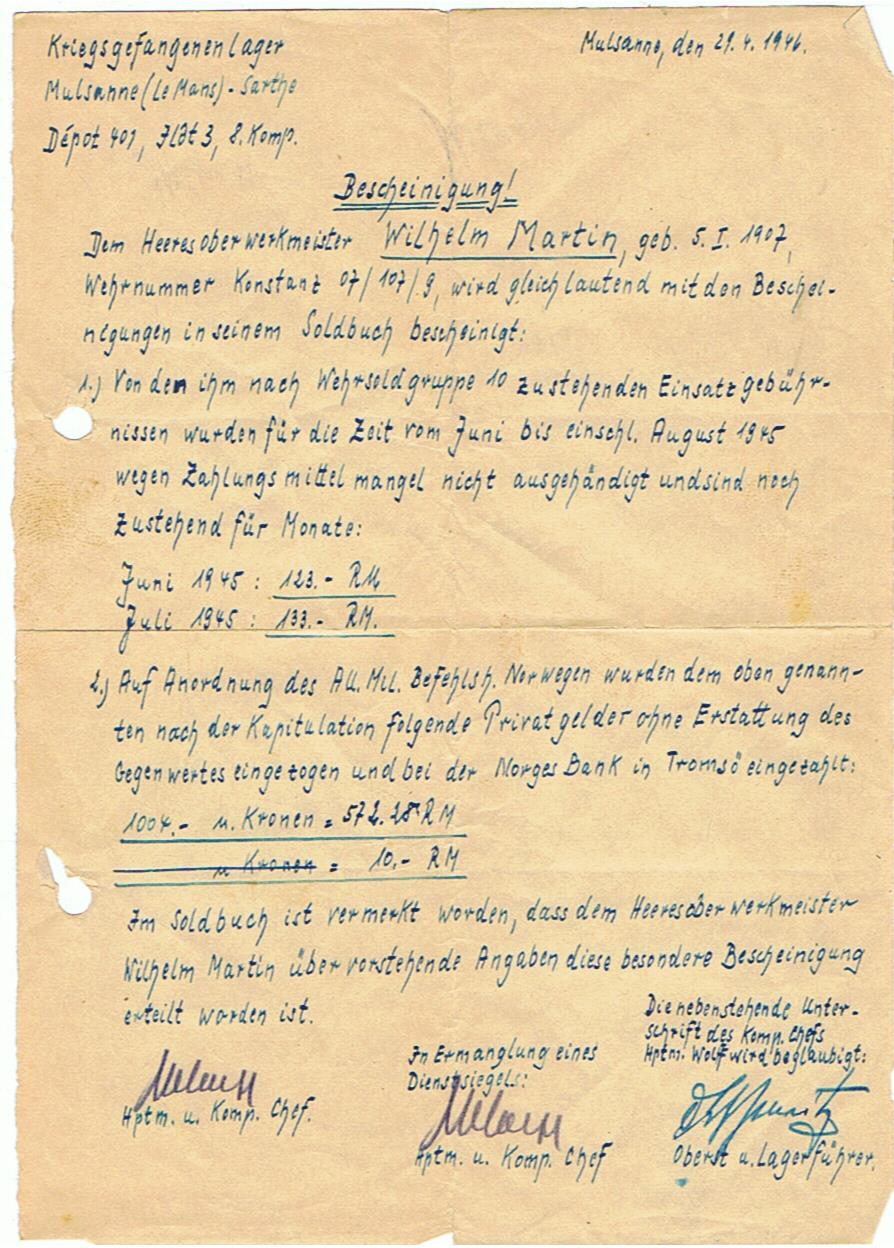 Kriegsgefangenenlager
Mulsanne, den 29.4.1946.
Mulsanne (Le Mans) - Sarthe
Dépot 401, Ildt 3, 8. Komp.
Bescheinigung!
Dem Heeresoberwerkmeister Wilhelm Martin, geb. 5. I. 1907,
Wehrnummer Konstanz 07/107/9, wird gleichlautend mit den Beschei-
nigungen in seinem Soldbuch bescheinigt:
1.) Von den ihm nach Wehrsoldgruppe 10 zustehenden Einsatzgebühr-
nissen wurden für die Zeit vom Juni bis einschl. August 1945
wegen Zahlungsmittelmangel nicht ausgehändigt und sind noch
zustehend für Monate:
Juni 1945 : 123.- RM
Juli 1945 : 133.- RM.
2.) Auf Anordnung des All. Mil. Befehlsh. Norwegen wurden dem oben genann-
ten nach der Kapitulation folgende Privatgelder ohne Erstattung des
Gegenwertes eingezogen und bei der Norges Bank in Tromsö eingezahlt:
1004.- n. Kronen = 572.28 RM
n Kronen = 10.- RM
Im Soldbuch ist vermerkt worden, dass dem Heeresoberwerkmeister
Wilhelm Martin über vorstehende Angaben diese besondere Bescheinigung
erteilt worden ist.
Die nebenstehende Unter-
schrift des Komp. Chefs
Hptm. Wolff wird beglaubigt:
In Ermanglung eines
Dienstsiegels:
Hptm. u. Komp. Chef.
Hptm. u. Komp. Chef
Oberst u. Lagerführer.